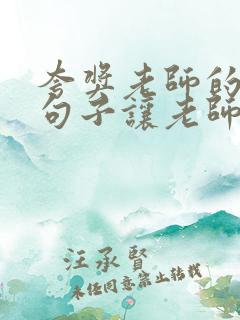 夸獎老師的
句子讓老師
汪承賢
未經同意禁止轉載